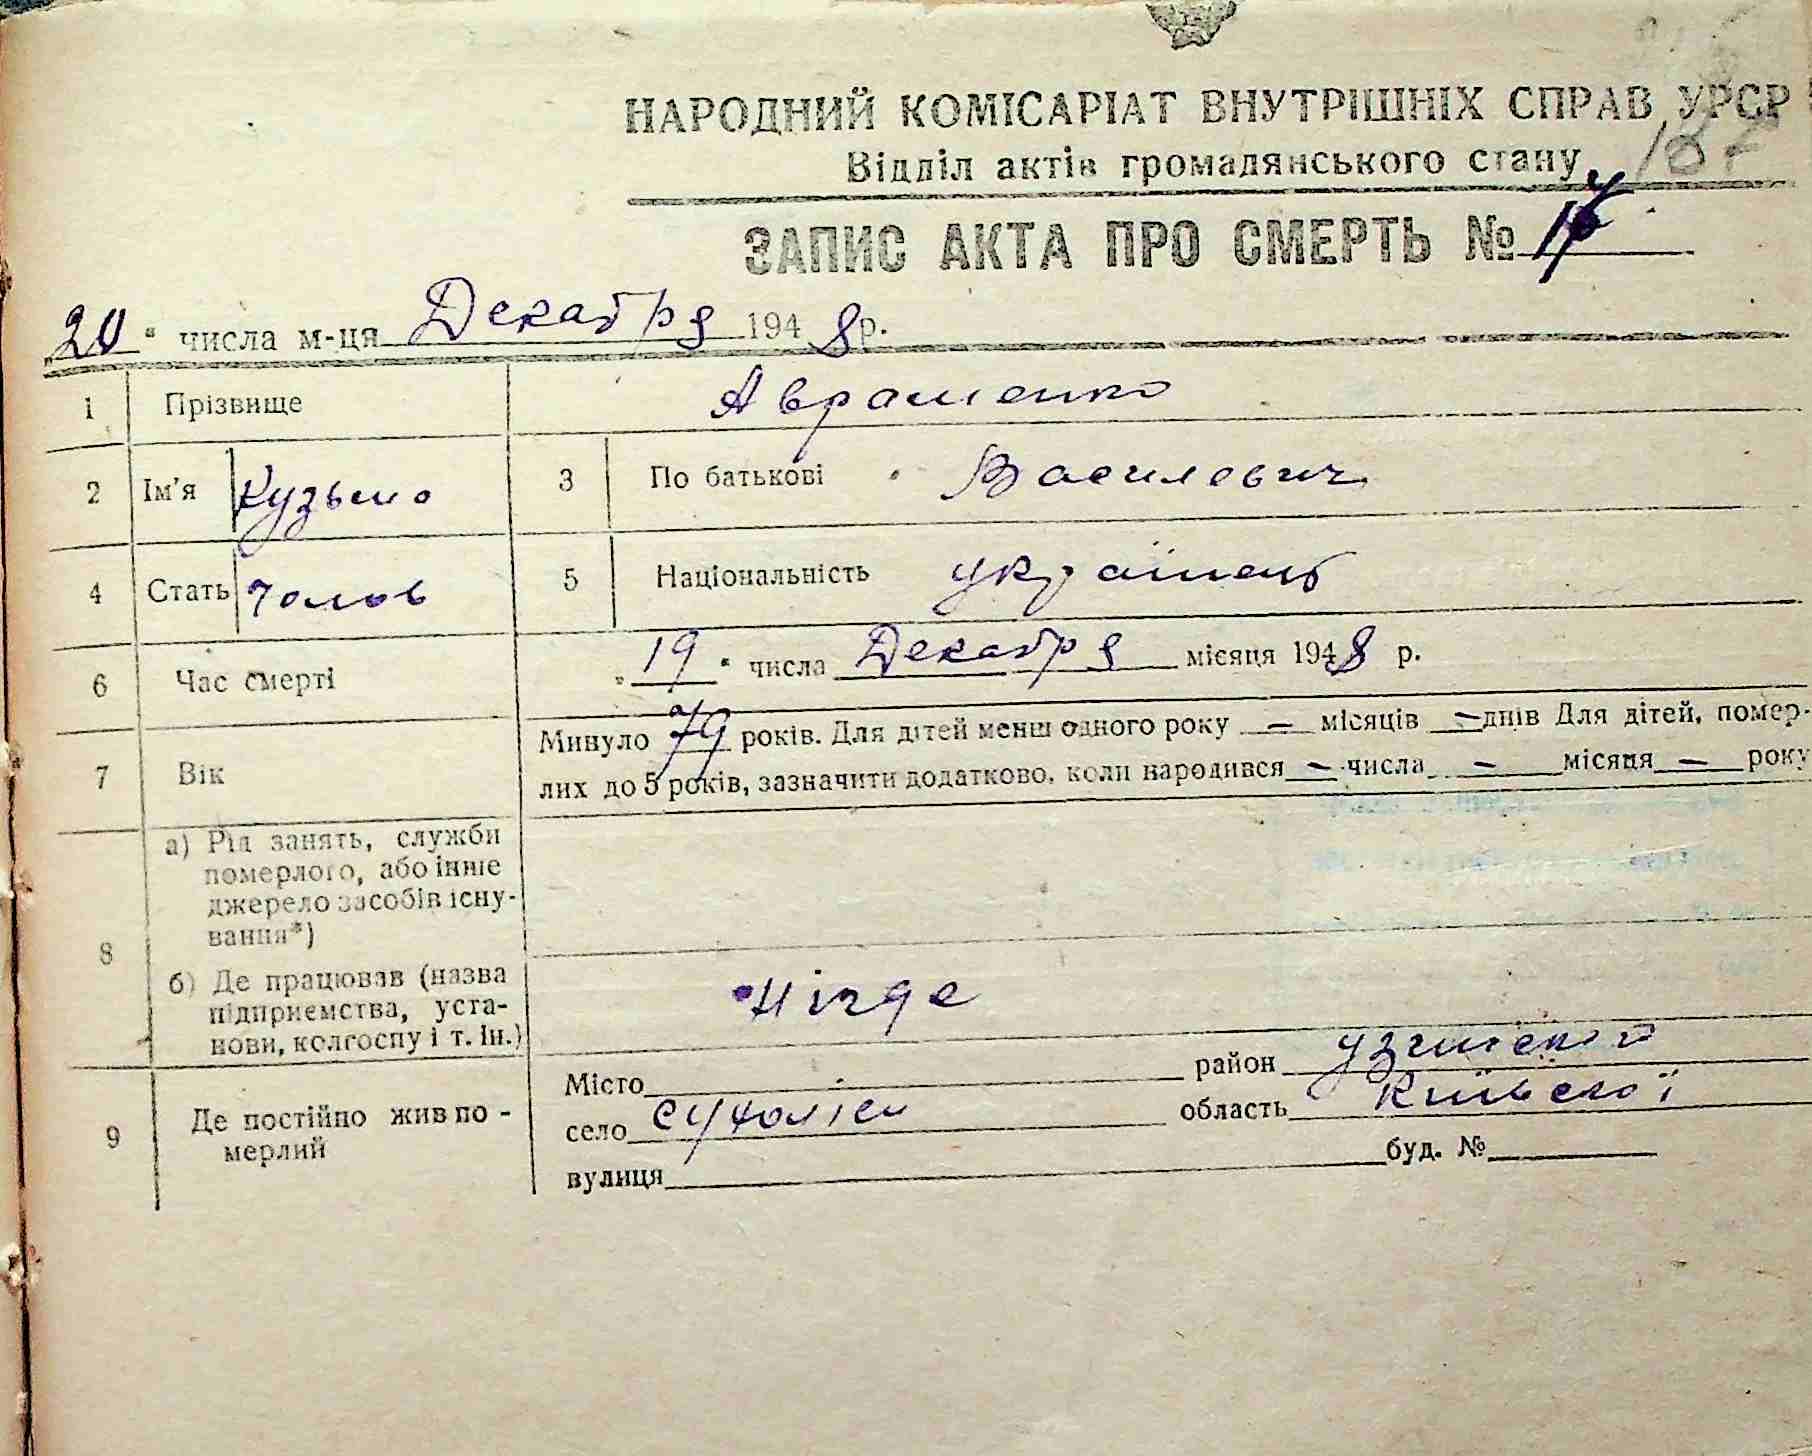 НАРОДНИЙ КОМІСАРІАТ ВНУТРІШНІХ СПРАВ УРСР
187
Відділ актів громадянського стану
ЗАПИС АКТА ПРО СМЕРТЬ №
20 " числа м-ця Декабря 1948 р.
1 Прізвище Авраменко
2 Ім'я Кузьмо 3 По батькові Василевич
4 Стать чолов 5 Національність українець
6 Час смерті "19" числа Декабря місяця 1948 р.
7 Вік Минуло 79 років. Для дітей менш одного року — місяців — днів Для дітей, помер-
лих до 5 років, зазначити додатково, коли народився — числа — місяця — року
8 а) Рід занять, служби
померлого, або інше
джерело засобів існу-
вання*)
б) Де працював (назва
підприємства, уста-
нови, колгоспу і т. ін.)
Нігде
9 Де постійно жив по-
мерлий
Місто район Узинський
село Сухоліси область Київської
вулиця буд. №